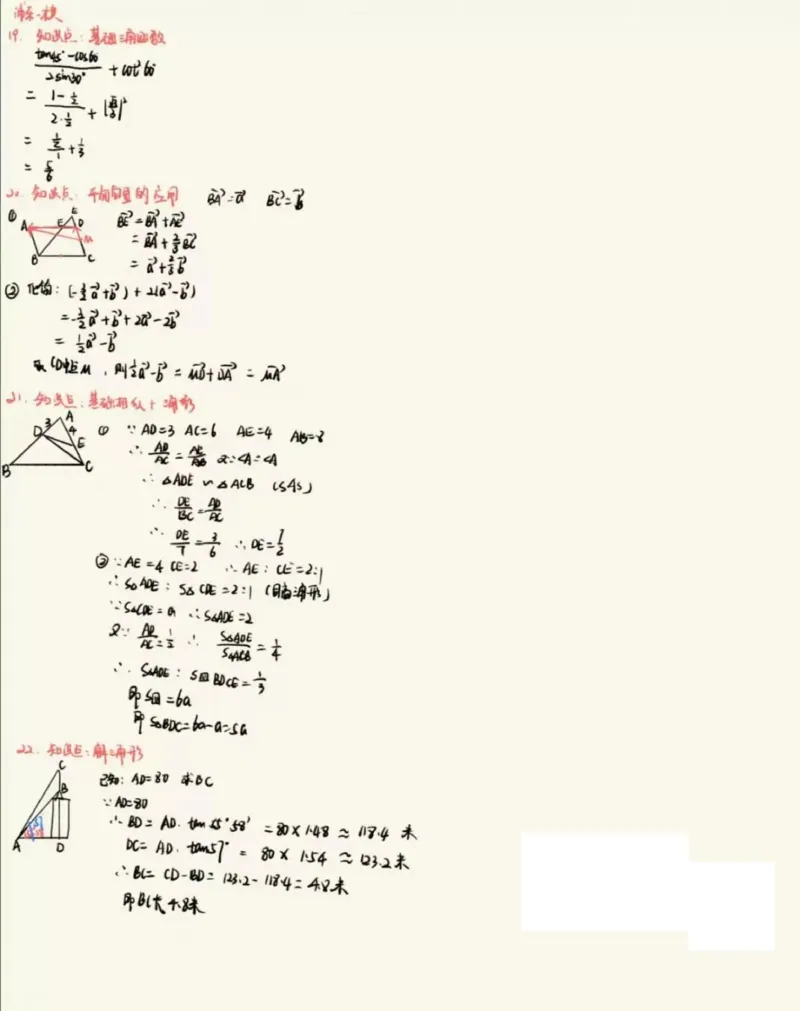 浦东一模
19. 知识点：基础三角函数
(tan45°-cos60)/(2sin30°) + cot²60
= (1-1/2)/(2·1/2) + (√3/3)²
= (1/2)/1 + 1/3
= 5/6
20. 知识点：平面向量的应用 BA→=a→ BC→=b→
① BE→=BA→+AE→
A E D
= BA→+2/3 BC→
B C M
= a→+2/3 b→
② 化简：(-3/2 a→+b→)+2(a→-b→)
=-3/2 a→+b→+2a→-2b→
= 1/2 a→-b→
取CD中点M，则1/2 a→-b→ = MD→+DA→ = MA→
21. 知识点：基础相似三角形
A D 3 4 E B C
① ∵AD=3 AC=6 AE=4 AB=8
∴ AD/AC = AE/AB 又∵<A=<A
∴△ADE∽△ACB (SAS)
∴ DE/BC = AD/AC
∴ DE/7 = 3/6 ∴DE=7/2
② ∵AE=4 CE=2 ∴AE：CE=2:1
∴S△ADE：S△CDE=2:1 (同高三角形)
∵S△CDE=a ∴S△ADE=2
又∵ AD/AC=1/2 ∴ S△ADE/S△ACB = 1/4
∴ S△ADE：S四BDCE=1/3
即S四=6a
即S△BDC=6a-a=5a
22. 知识点：解三角形
C B A D
已知：AD=80 求BC
∵AD=80
∴BD=AD·tan55°58′=80×1.48≈118.4米
DC=AD·tan57°=80×1.54≈123.2米
∴BC=CD-BD=123.2-118.4=4.8米
即BC长4.8米